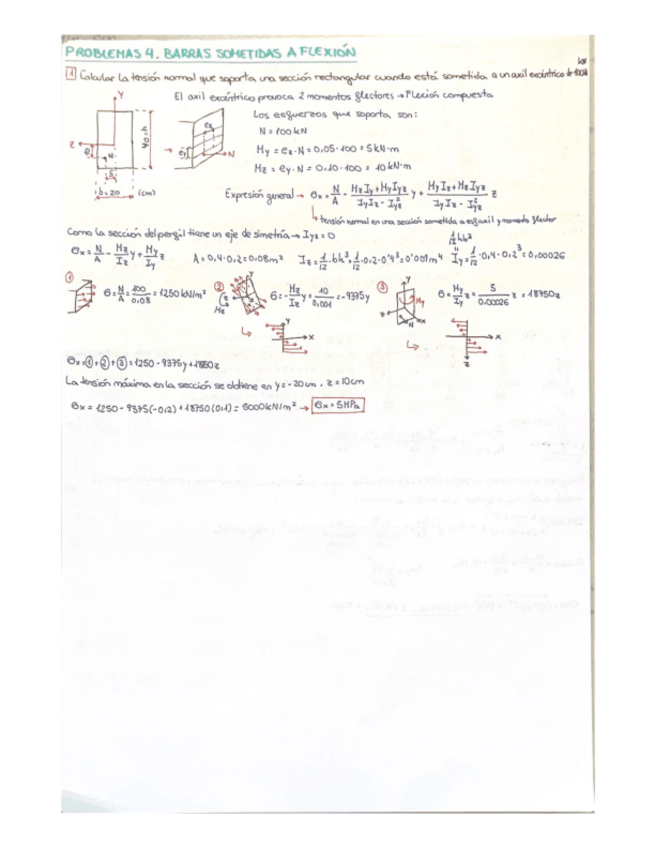 PROBLEMAS 4. BARRAS SOMETIDAS A FLEXIÓN
1 Calcular la tensión normal que soporta una sección rectangular cuando está sometida a un axil excéntrico de 100kN
El axil excéntrico provoca 2 momentos flectores → Flexión compuesta
Los esfuerzos que soporta son:
N = 100 kN
My = ez·N = 0,05·100 = 5 kN·m
Mz = ey·N = 0,10·100 = 10 kN·m
Y
z
N
h=40
b=20 (cm)
ez
ey
N
Expresión general → σx = N/A - (MzIy+MyIyz)/(IyIz-Iyz²) y + (MyIz+MzIyz)/(IyIz-Iyz²) z
↳ tensión normal en una sección sometida a esf. axil y momento flector
Como la sección del pergil tiene un eje de simetría → Iyz = 0
1/12 hb³
σx = N/A - Mz/Iz y + My/Iy z A = 0,4·0,2 = 0,08 m² Iz = 1/12·bh³ = 1/12·0,2·0,4³ = 0'001 m⁴ Iy = 1/12·0,4·0,2³ = 0,00026
① σ = N/A = 100/0,08 = 1250 kN/m² ② σ = -Mz/Iz y = 10/0,001 = -9375y ③ σ = My/Iy z = 5/0,00026 z = 18750z
σx = ①+②+③ = 1250 - 9375y + 18750z
La tensión máxima en la sección se obtiene en y = -20cm, z = 10cm
σx = 1250 - 9375(-0,2) + 18750(0,1) = 5000 kN/m² → σx = 5MPa